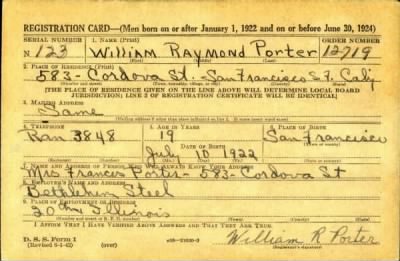 REGISTRATION CARD—(Men born on or after January 1, 1922 and on or before June 30, 1924)
SERIAL NUMBER 1. NAME (Print) ORDER NUMBER
N 123 William Raymond Porter 12719
(First) (Middle) (Last)
2. PLACE OF RESIDENCE (Print)
583 - Cordova St. San Francisco S.F. Calif
[THE PLACE OF RESIDENCE GIVEN ON THE LINE ABOVE WILL DETERMINE LOCAL BOARD
JURISDICTION; LINE 2 OF REGISTRATION CERTIFICATE WILL BE IDENTICAL]
3. MAILING ADDRESS
Same
4. TELEPHONE 5. AGE IN YEARS 6. PLACE OF BIRTH
Ran 3848 19 San Francisco
DATE OF BIRTH
July 10 1922
7. NAME AND ADDRESS OF PERSON WHO WILL ALWAYS KNOW YOUR ADDRESS
Mrs Francis Porter - 583 - Cordova St
8. EMPLOYER'S NAME AND ADDRESS
Bethlehem Steel
9. PLACE OF EMPLOYMENT OR BUSINESS
20th Illinois
I AFFIRM THAT I HAVE VERIFIED ABOVE ANSWERS AND THAT THEY ARE TRUE.
D. S. S. Form 1
(over)
William R Porter
(Registrant's signature)